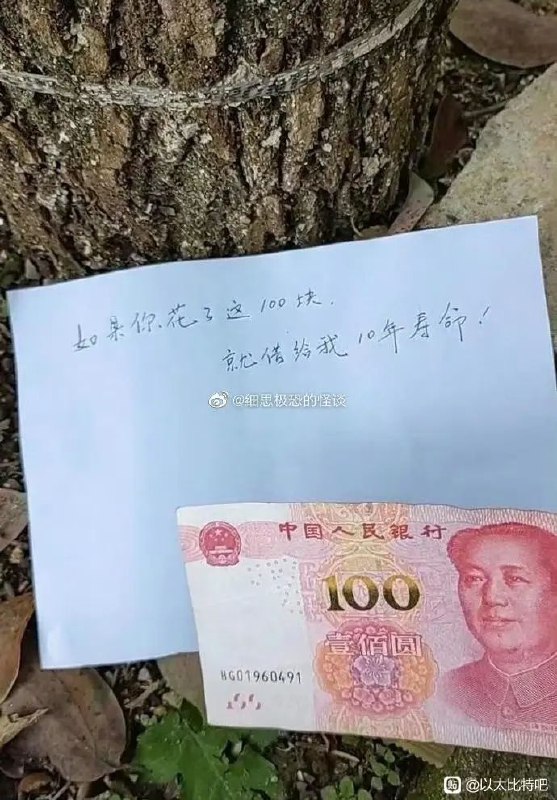 如果你花了这100块.
就借给我10年寿命!
@细思极恐的怪谈
中国人民银行
100
壹佰圆
HG01960491
@以太比特吧